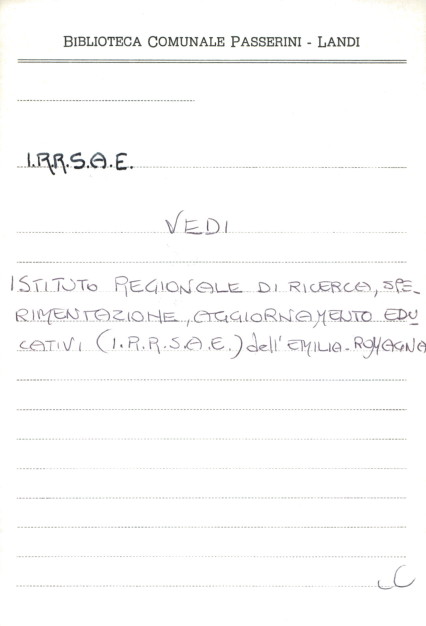 BIBLIOTECA COMUNALE PASSERINI - LANDI
I.R.R.S.A.E.
VEDI
ISTITUTO REGIONALE DI RICERCA, SPE-
RIMENTAZIONE, AGGIORNAMENTO EDU
CATIVI (I.R.R.S.A.E.) dell'EMILIA-ROMAGNA